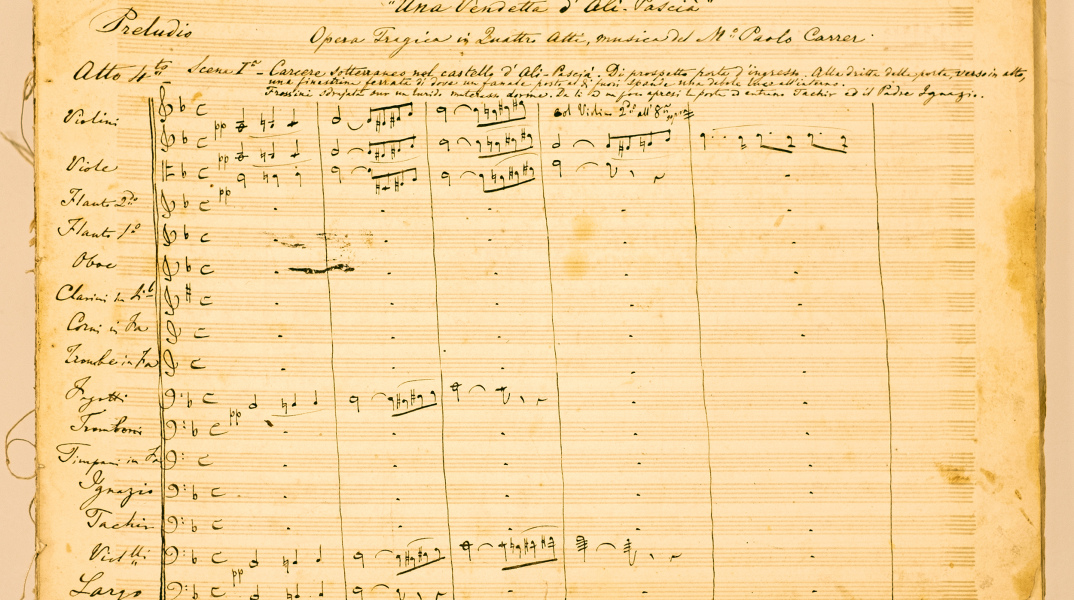 "Una Vendetta d'Ali-Pascià"
Preludio
Opera Tragica in Quattro Atti, musica del Mº Paolo Carrer.
Atto 4to Scena Iª - Carcere sotterraneo nel castello d'Ali-Pascià. Di prospetto porta d'ingresso. Alla dritta della porta, verso in alto,
una finestrina ferrata di dove un fanale posto di fuori spande una debole luce all'interno.
Frossini sdrajata sur un lurido materasso dorme. Da lì a un poco apresi la porta ed entrano Tachir ed il Padre Ignazio.
Violini
pp
col Violin 2do all' 8va
pp
Viole
pp
Flauto 2do
Flauto 1º
Oboe
Clarini in
Corni in Fa
Trombe in Fa
Fagotti
pp
Tromboni
Timpani in Fa
Ignazio
Tachir
Viol lli
pp
Largo